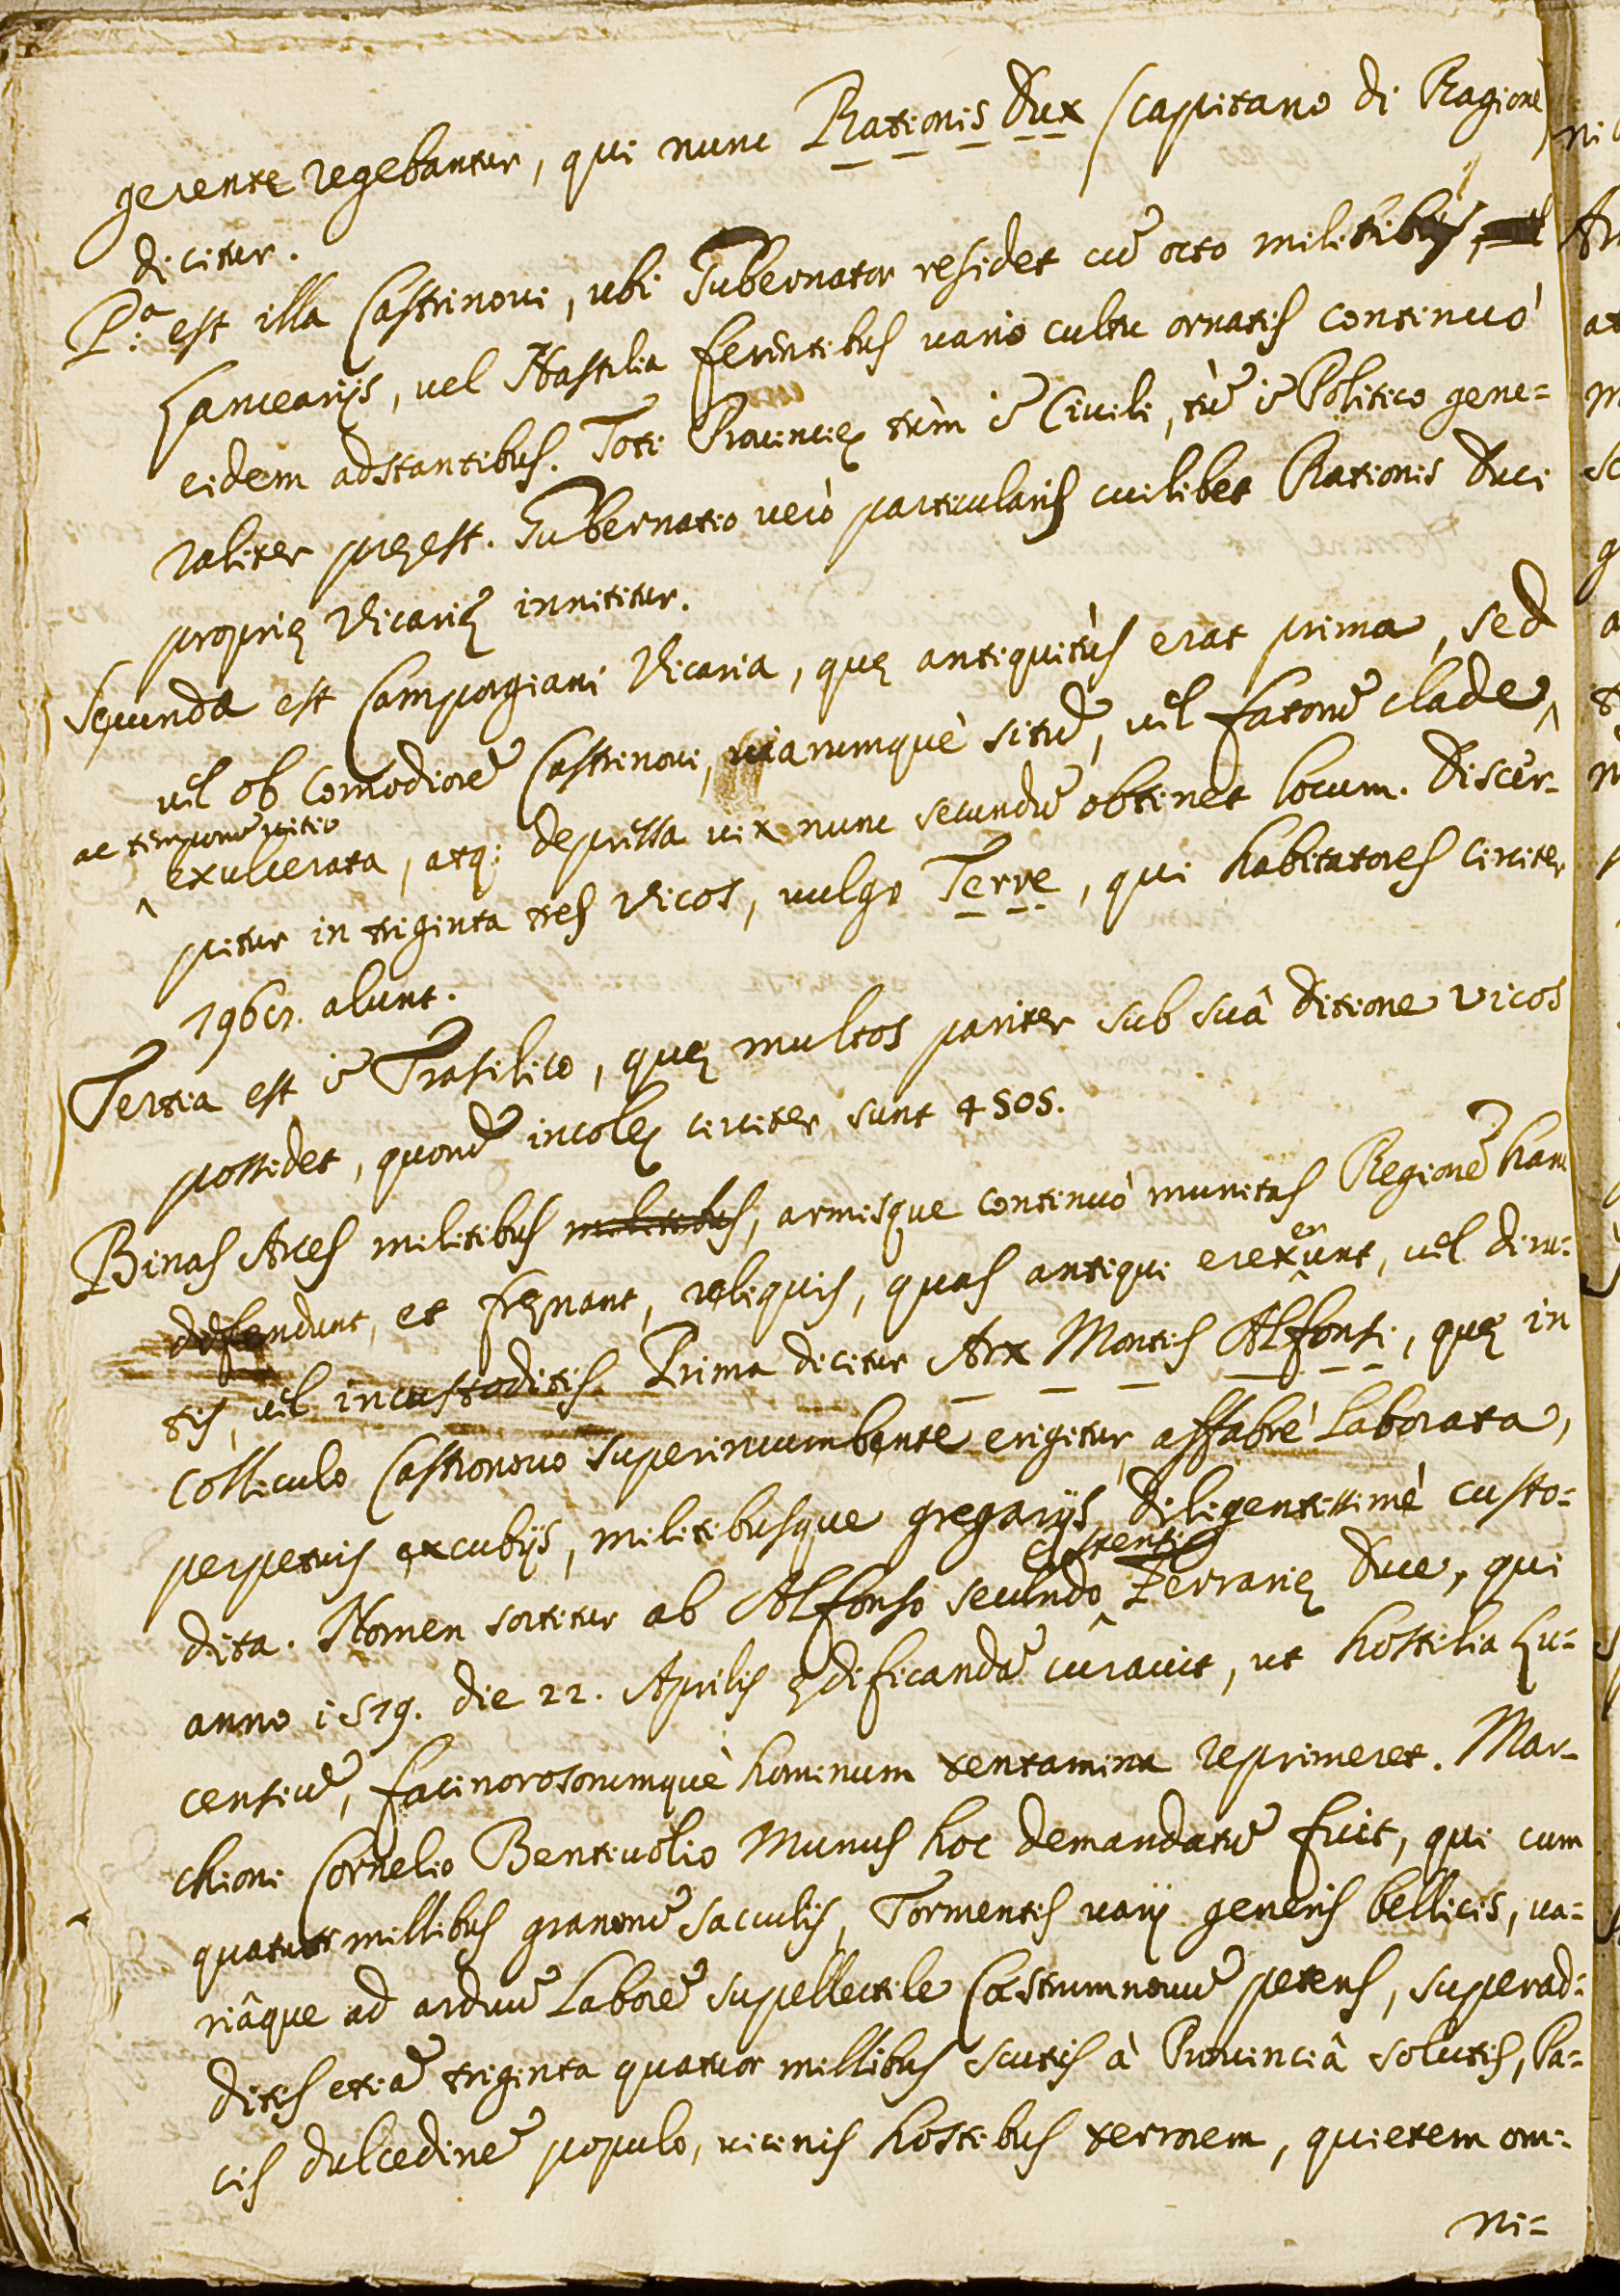 gerente regebantur, qui nunc Rationis Dux (Capitano di Ragione)
dicitur.
P.ª est illa Castrinovi, ubi Gubernator residet cũ octo militibus,
Lanceariis, vel Hastilia ferentibus vario cultu ornatis continuò
eidem adstantibus. Toti Provincię tùm ĩ Civili, tũ ĩ Politico gene=
raliter pręest. Gubernatio verò particularis cuilibet Rationis Duci
proprię Vicarię innititur.
Secunda est Camporgiani Vicaria, quę antiquitùs erat prima, sed
vel ob comodiorẽ Castrinovi, viarumquè sitũ, vel fatorũ clade,
ac temporũ vitio
exulcerata, atq; depressa vix nunc secundũ obtinet locum. Discer-
pitur in triginta tres Vicos, vulgo Terre, qui habitatores circiter
7965. alunt.
Tertia est ĩ Trasilico, quę multos pariter sub suâ ditione vicos
possidet, quorũ incolę circiter sunt 4505.
Binas Arces militibus militibus, armisque continuò munitas Regionẽ hanc
defendunt, et fręnant, reliquis, quas antiqui erexerunt, vel diru=
tis, vel incustoditis. Prima dicitur Arx Montis Alfonsi, quę in
Colliculo Castronovo superincumbente erigitur affabrè laborata,
perpetuis excubijs, militibusque gregarijs diligentissimè custo=
dita. Nomen sortitur ab Alfonso secundo Estensi Ferrarię Duce, qui
anno 1579. die 22. Aprilis ędificandã curavit, ut hostilia Lu=
censiũ, facinorosorumquè hominum tentamina reprimeret. Mar-
chioni Cornelio Bentivolio Munus hoc demandatũ fuit, qui cum
quatuor millibus granorũ sacculis, Tormentis varij generis bellicis, va=
riâque ad arduũ Laborẽ supellectile Castrumnovũ petens, superad=
ditis etiã triginta quatuor millibus scutis à Provinciâ solutis, Pa=
cis dulcedinẽ populo, vicinis hostibus terrorem, quietem om=
ni=